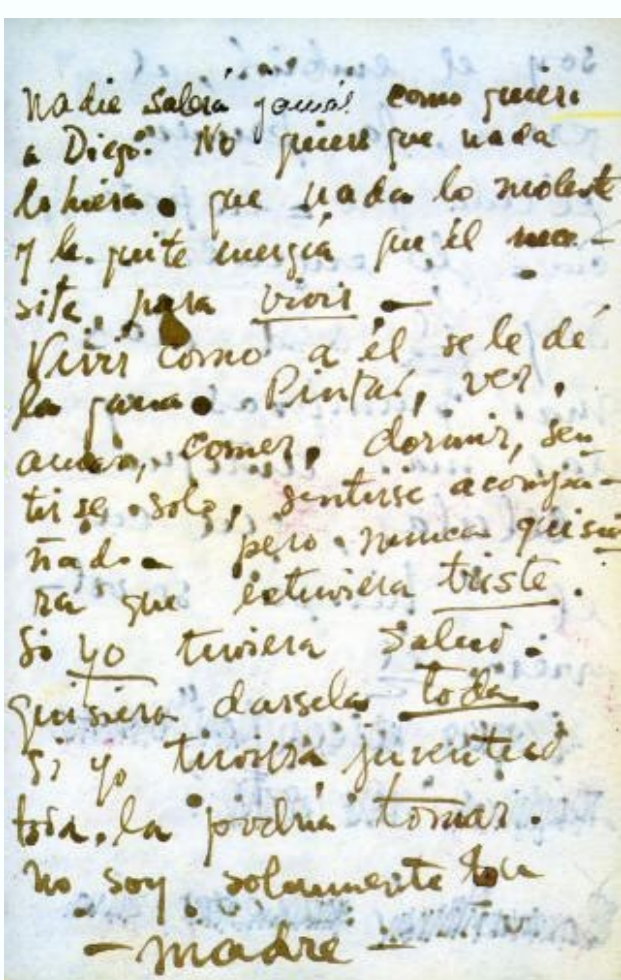 Nadie sabrá jamás como quiero
a Diego. No quiero que nada
lo hiera. que nada lo moleste
y le quite energía que él nece-
sita para vivir -
Vivir como a él se le dé
la gana. Pintar, ver,
amar, comer, dormir, sen
tirse solo, sentirse acompa-
ñado - pero nunca quisie
ra que estuviera triste.
Si yo tuviera salud.
quisiera darsela toda
si yo tuviera juventud
toda la podría tomar.
no soy solamente tu
- madre -